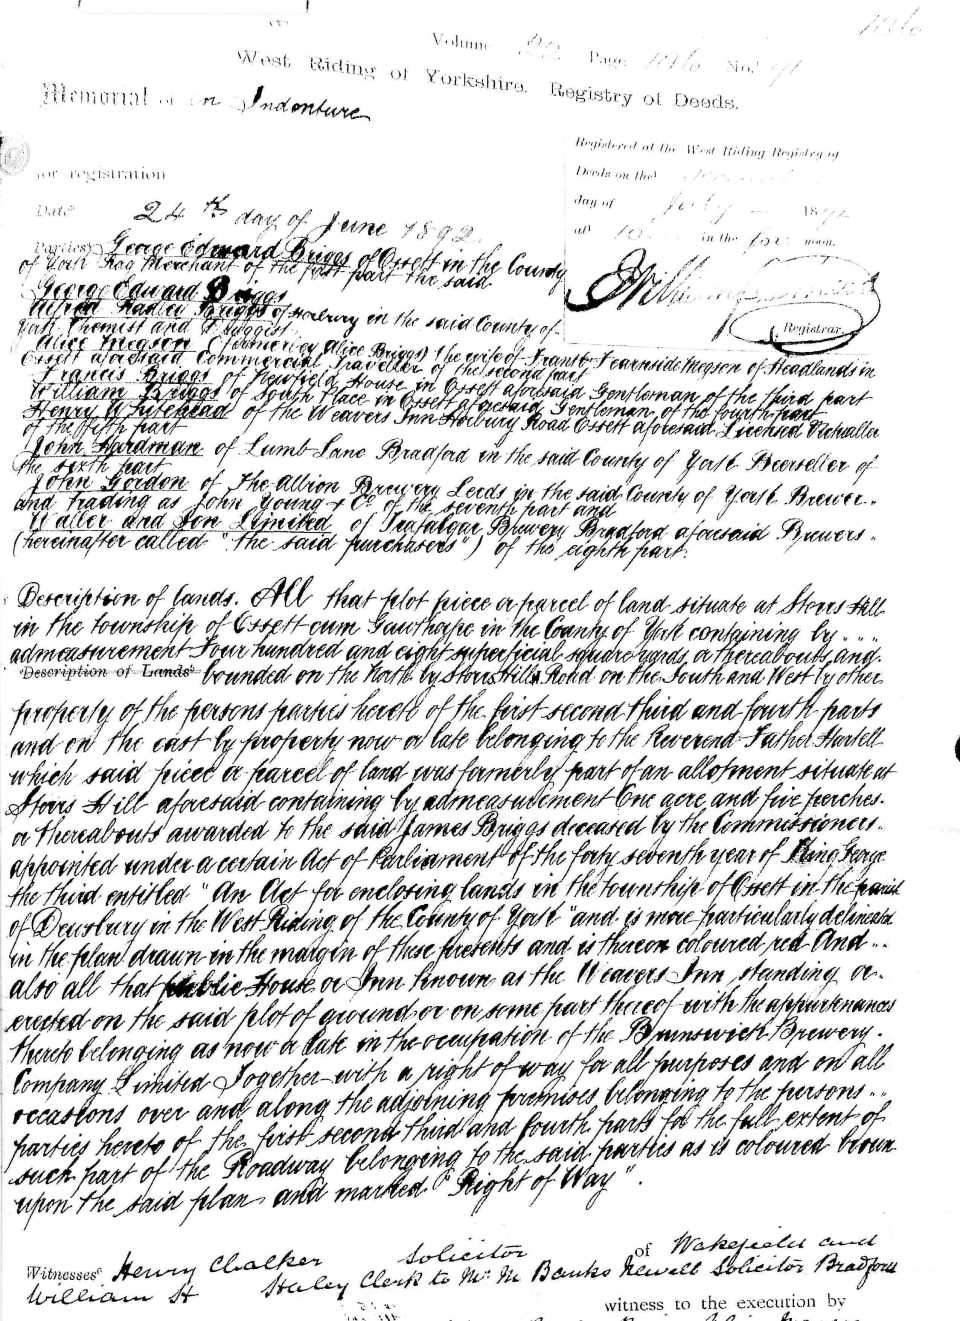 Volume 22 Page 1816 No. 91
West Riding of Yorkshire. Registry of Deeds.
Memorial of an Indenture
for registration
Registered at the West Riding Registry of
Deeds on the
day of July 1892
at in the noon.
Registrar.
Date 24th day of June 1892.
Parties George Edward Briggs of Ossett in the County
of York Rag Merchant of the first part the said
George Edward Briggs
Alfred Briggs of Horbury in the said County of
York Chemist and Druggist
Alice Megson (formerly Alice Briggs) the wife of Frank Fearnside Megson of Headlands in
Ossett aforesaid Commercial Traveller of the second part
Francis Briggs of Newfield House in Ossett aforesaid Gentleman of the third part
William Briggs of South Place in Ossett aforesaid Gentleman of the fourth part
Henry Whitehead of the Weavers Inn Horbury Road Ossett aforesaid Licensed Victualler
of the fifth part
John Hardman of Lumb Lane Bradford in the said County of York Beerseller of
the sixth part
John Gordon of The Albion Brewery Leeds in the said County of York Brewer
and trading as John Young & Co of the seventh part and
Waller and Son Limited of Trafalgar Brewery Bradford aforesaid Brewers
(hereinafter called "the said purchasers") of the eighth part:
Description of lands. All that plot piece or parcel of land situate at Storrs Hill
in the township of Ossett cum Gawthorpe in the County of York containing by
admeasurement Four hundred and eight superficial square yards or thereabouts and
Description of Lands bounded on the North by Storrs Hill Road on the South and West by other
property of the persons parties hereto of the first second third and fourth parts
and on the east by property now or late belonging to the Reverend Father Hurtell
which said piece or parcel of land was formerly part of an allotment situate at
Storrs Hill aforesaid containing by admeasurement One acre and five perches
or thereabouts awarded to the said James Briggs deceased by the Commissioners
appointed under a certain Act of Parliament of the forty seventh year of King George
the third entitled "An Act for enclosing lands in the township of Ossett in the parish
of Dewsbury in the West Riding of the County of York" and is more particularly delineated
in the plan drawn in the margin of these presents and is thereon coloured red And
also all that public House or Inn known as the Weavers Inn standing or
erected on the said plot of ground or on some part thereof with the appurtenances
thereto belonging as now or late in the occupation of the Brunswick Brewery
Company Limited Together with a right of way for all purposes and on all
occasions over and along the adjoining premises belonging to the persons
parties hereto of the first second third and fourth parts for the full extent of
such part of the Roadway belonging to the said parties as is coloured brown
upon the said plan and marked "Right of Way".
Witnesses Henry Chalker Solicitor of Wakefield and
William H Haley Clerk to Mr M Banks Newell Solicitor Bradford
witness to the execution by